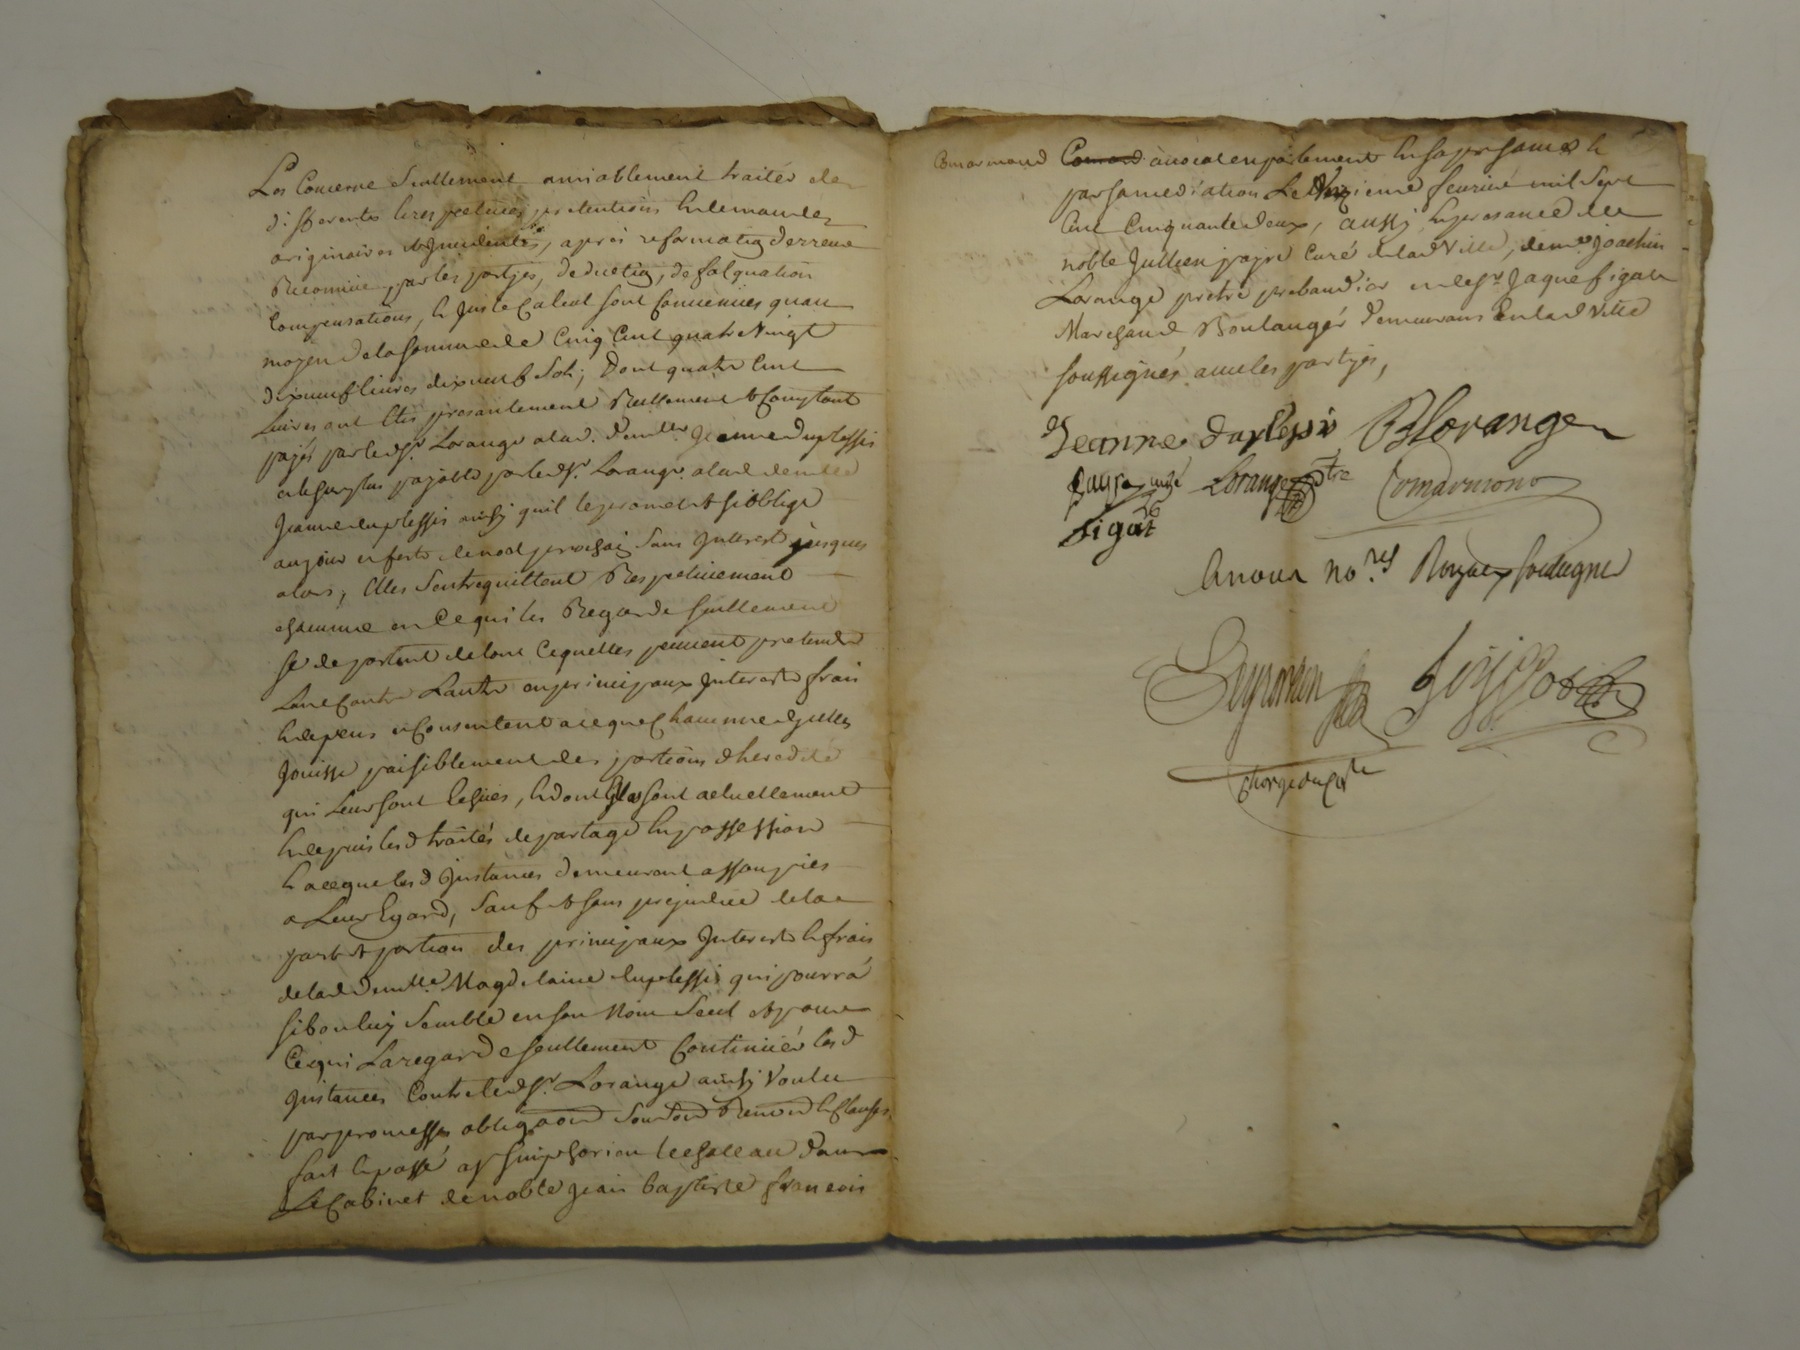 Les Concerne Seullement amiablement traités de
differents leres pectives pretentions & demandes
originaires & Incidentes, aprés reformation derreur
Reconnüe par les partjes, deduction, defalquation
Compensations, & Juste Calcul sont Convenües quau
moyen de la somme de Cinq Cent quatre Vingt
dixneuf livres dixneuf Sols; Dont quatre Cent
Livres ont Etés presantement Reellement & Comptant
payés par led. Sr. Lorange alad. demlle. Jeanne Duplessis
et le Surplus payable par led. Sr. Lorange alad. demlle
Jeanne duplessis ainsy quil le promet & soblige
au jour et feste de noel prochain Sans Interest jusques
alors, Elles Sentrequittent Respectivement
chacune en Ce qui les Regarde Seullement
se departent de tout Ce quelles peuvent pretendre
Lune Contre Lautre en principaux Interests frais
& depens et Consentent a ce que Chacunne dJcelles
Jouisse paisiblement des portions dheredité
qui Leur sont Echües, & dont Elles sont actuellement
& depuis lesd traités de partage En possession
& a ce que lesd Jnstances demeurent assoupies
a Leur Egard, Sauf & sans prejudice de la
part & portion des principaux Interests & frais
de lad. Demlle. Magdelaine duplessis qui pourra
si bon luy Semble en son Nom Seul & pour
Ce qui La regarde seullement Continüer lesd
Jnstances Contre led. Sr. Lorange ainsy Voulu
par promesses obligaōns Soumōns Renonōns & Clauses
fait & passé a St Simphorien le chateau dans
Le Cabinet de noble Jean baptiste francois
Comarmond avocat en parlement En sa presance &
par sa mediation Le onzieme fevrier mil Sept
Cent Cinquante deux, aussy En presance de
noble Jullien paipre Curé de lad Ville, de mre Joachin
Lorange pretre prebandier et de Sr. Jaque figat
Marchand Boulanger demeurans En lad Ville
soussignés avec les partjes,
Jeanne duplessis BLorange
curé Lorange ptre Comarmond
figat
Et nous nores. Royaux soussignes